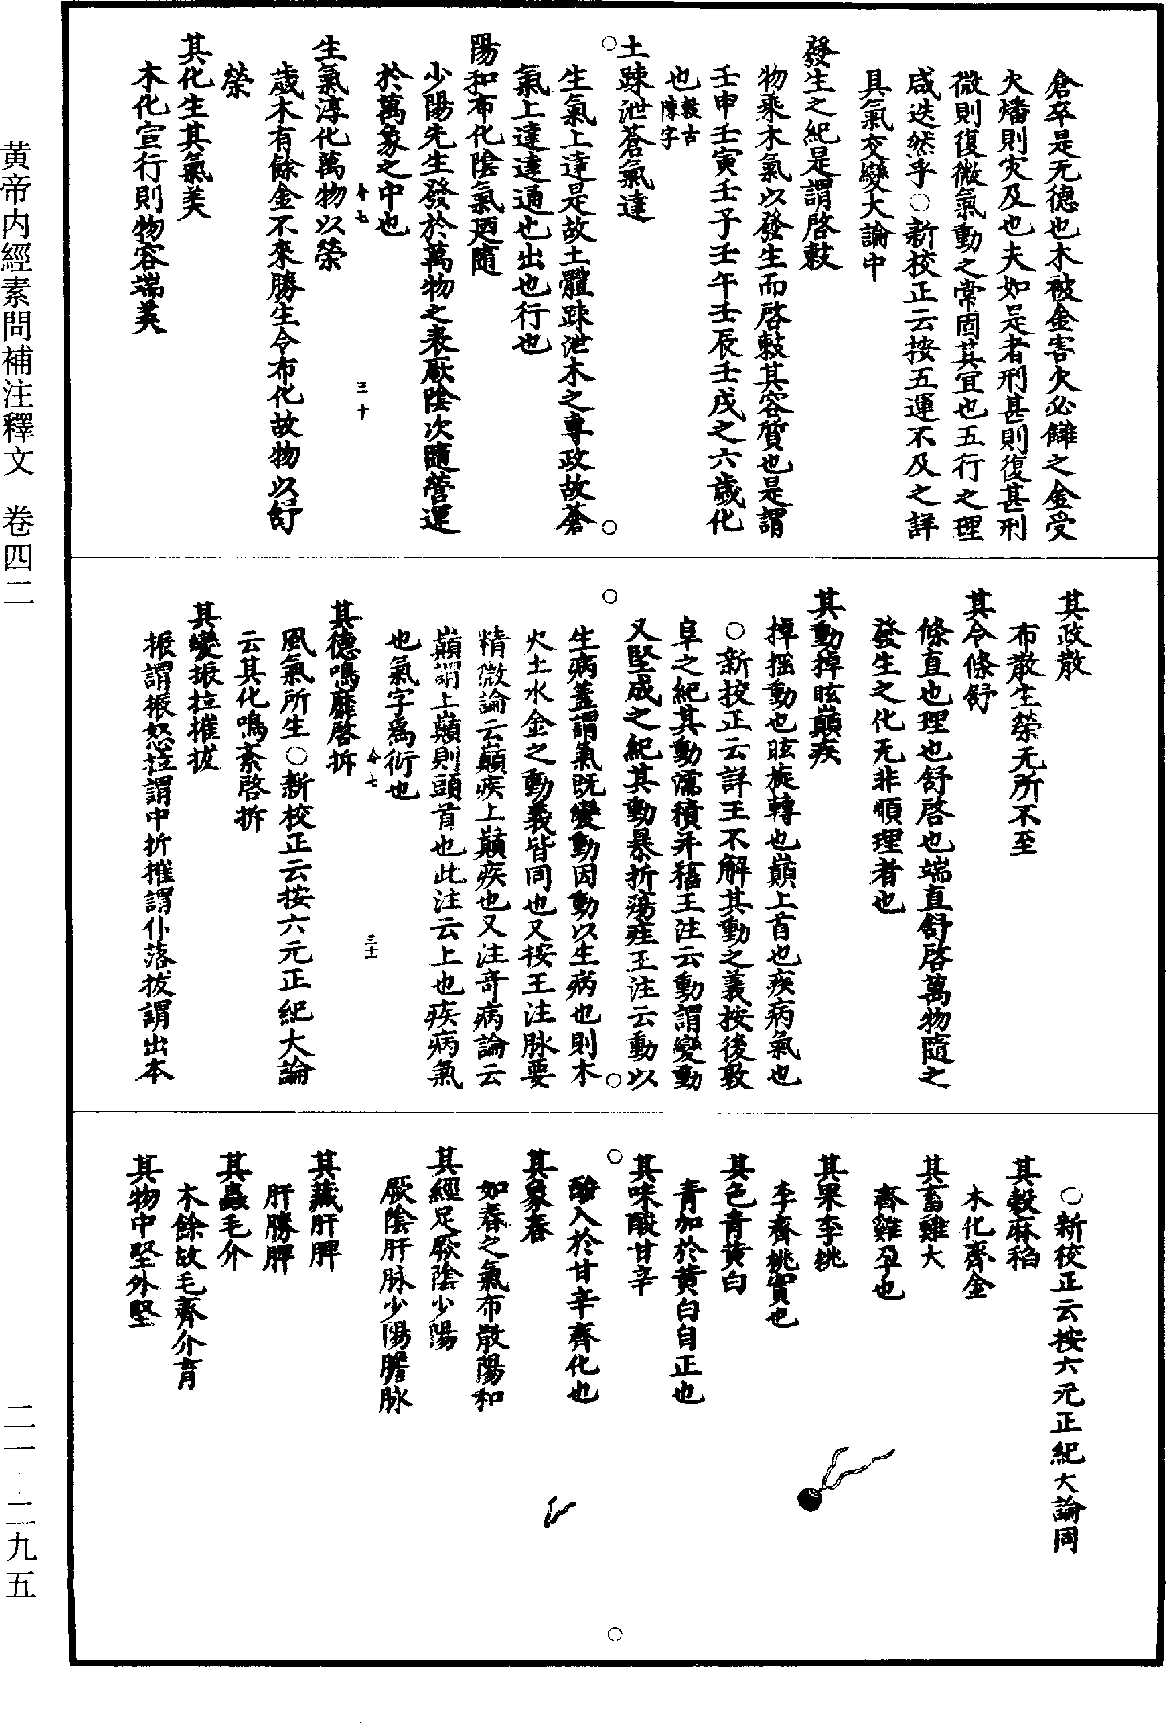 倉卒是无德也木被金害火必讎之金受
火燔則灾及也夫如是者刑甚則復甚刑
微則復微氣動之常固其宜也五行之理
咸迭然乎○新校正云按五運不及之詳
具氣交變大論中
發生之紀是謂啓敕
物乘木氣以發生而啓敕其容質也是謂
壬申壬寅壬子壬午壬辰壬戌之六歲化
也敕古陳字
土踈泄蒼氣達
生氣上達是故土體踈泄木之專政故蒼
氣上達達通也出也行也
陽和布化陰氣廼隨
少陽先生發於萬物之表厥陰次隨營運
於萬象之中也
十七
三十
生氣淳化萬物以榮
歲木有餘金不來勝生令布化故物以舒
榮
其化生其氣美
木化宣行則物容端美
其政散
布散生榮无所不至
其令條舒
條直也理也舒啓也端直舒啓萬物隨之
發生之化无非順理者也
其動掉眩巔疾
掉搖動也眩旋轉也巔上首也疾病氣也
○新校正云詳王不解其動之義按後敦
阜之紀其動濡積并稸王注云動謂變動
又堅成之紀其動暴折瘍疰王注云動以
生病蓋謂氣既變動因動以生病也則木
火土水金之動義皆同也又按王注脉要
精微論云巔疾上巔疾也又注奇病論云
巔謂上巔則頭首也此注云上也疾病氣
也氣字爲衍也
令七
三十一
其德鳴靡啓拆
風氣所生○新校正云按六元正紀大論
云其化鳴紊啓拆
其變振拉摧拔
振謂振怒拉謂中折摧謂仆落拔謂出本
○新校正云按六元正紀大論同
其穀麻稻
木化齊金
其畜雞犬
齊雞孕也
其果李桃
李齊桃實也
其色青黃白
青加於黃白自正也
其味酸甘辛
酸入於甘辛齊化也
其象春
如春之氣布散陽和
其經足厥陰少陽
厥陰肝脉少陽膽脉
其藏肝脾
肝勝脾
其蟲毛介
木餘故毛齊介育
其物中堅外堅
黄帝内經素問補注釋文 卷四二
二一·二九五